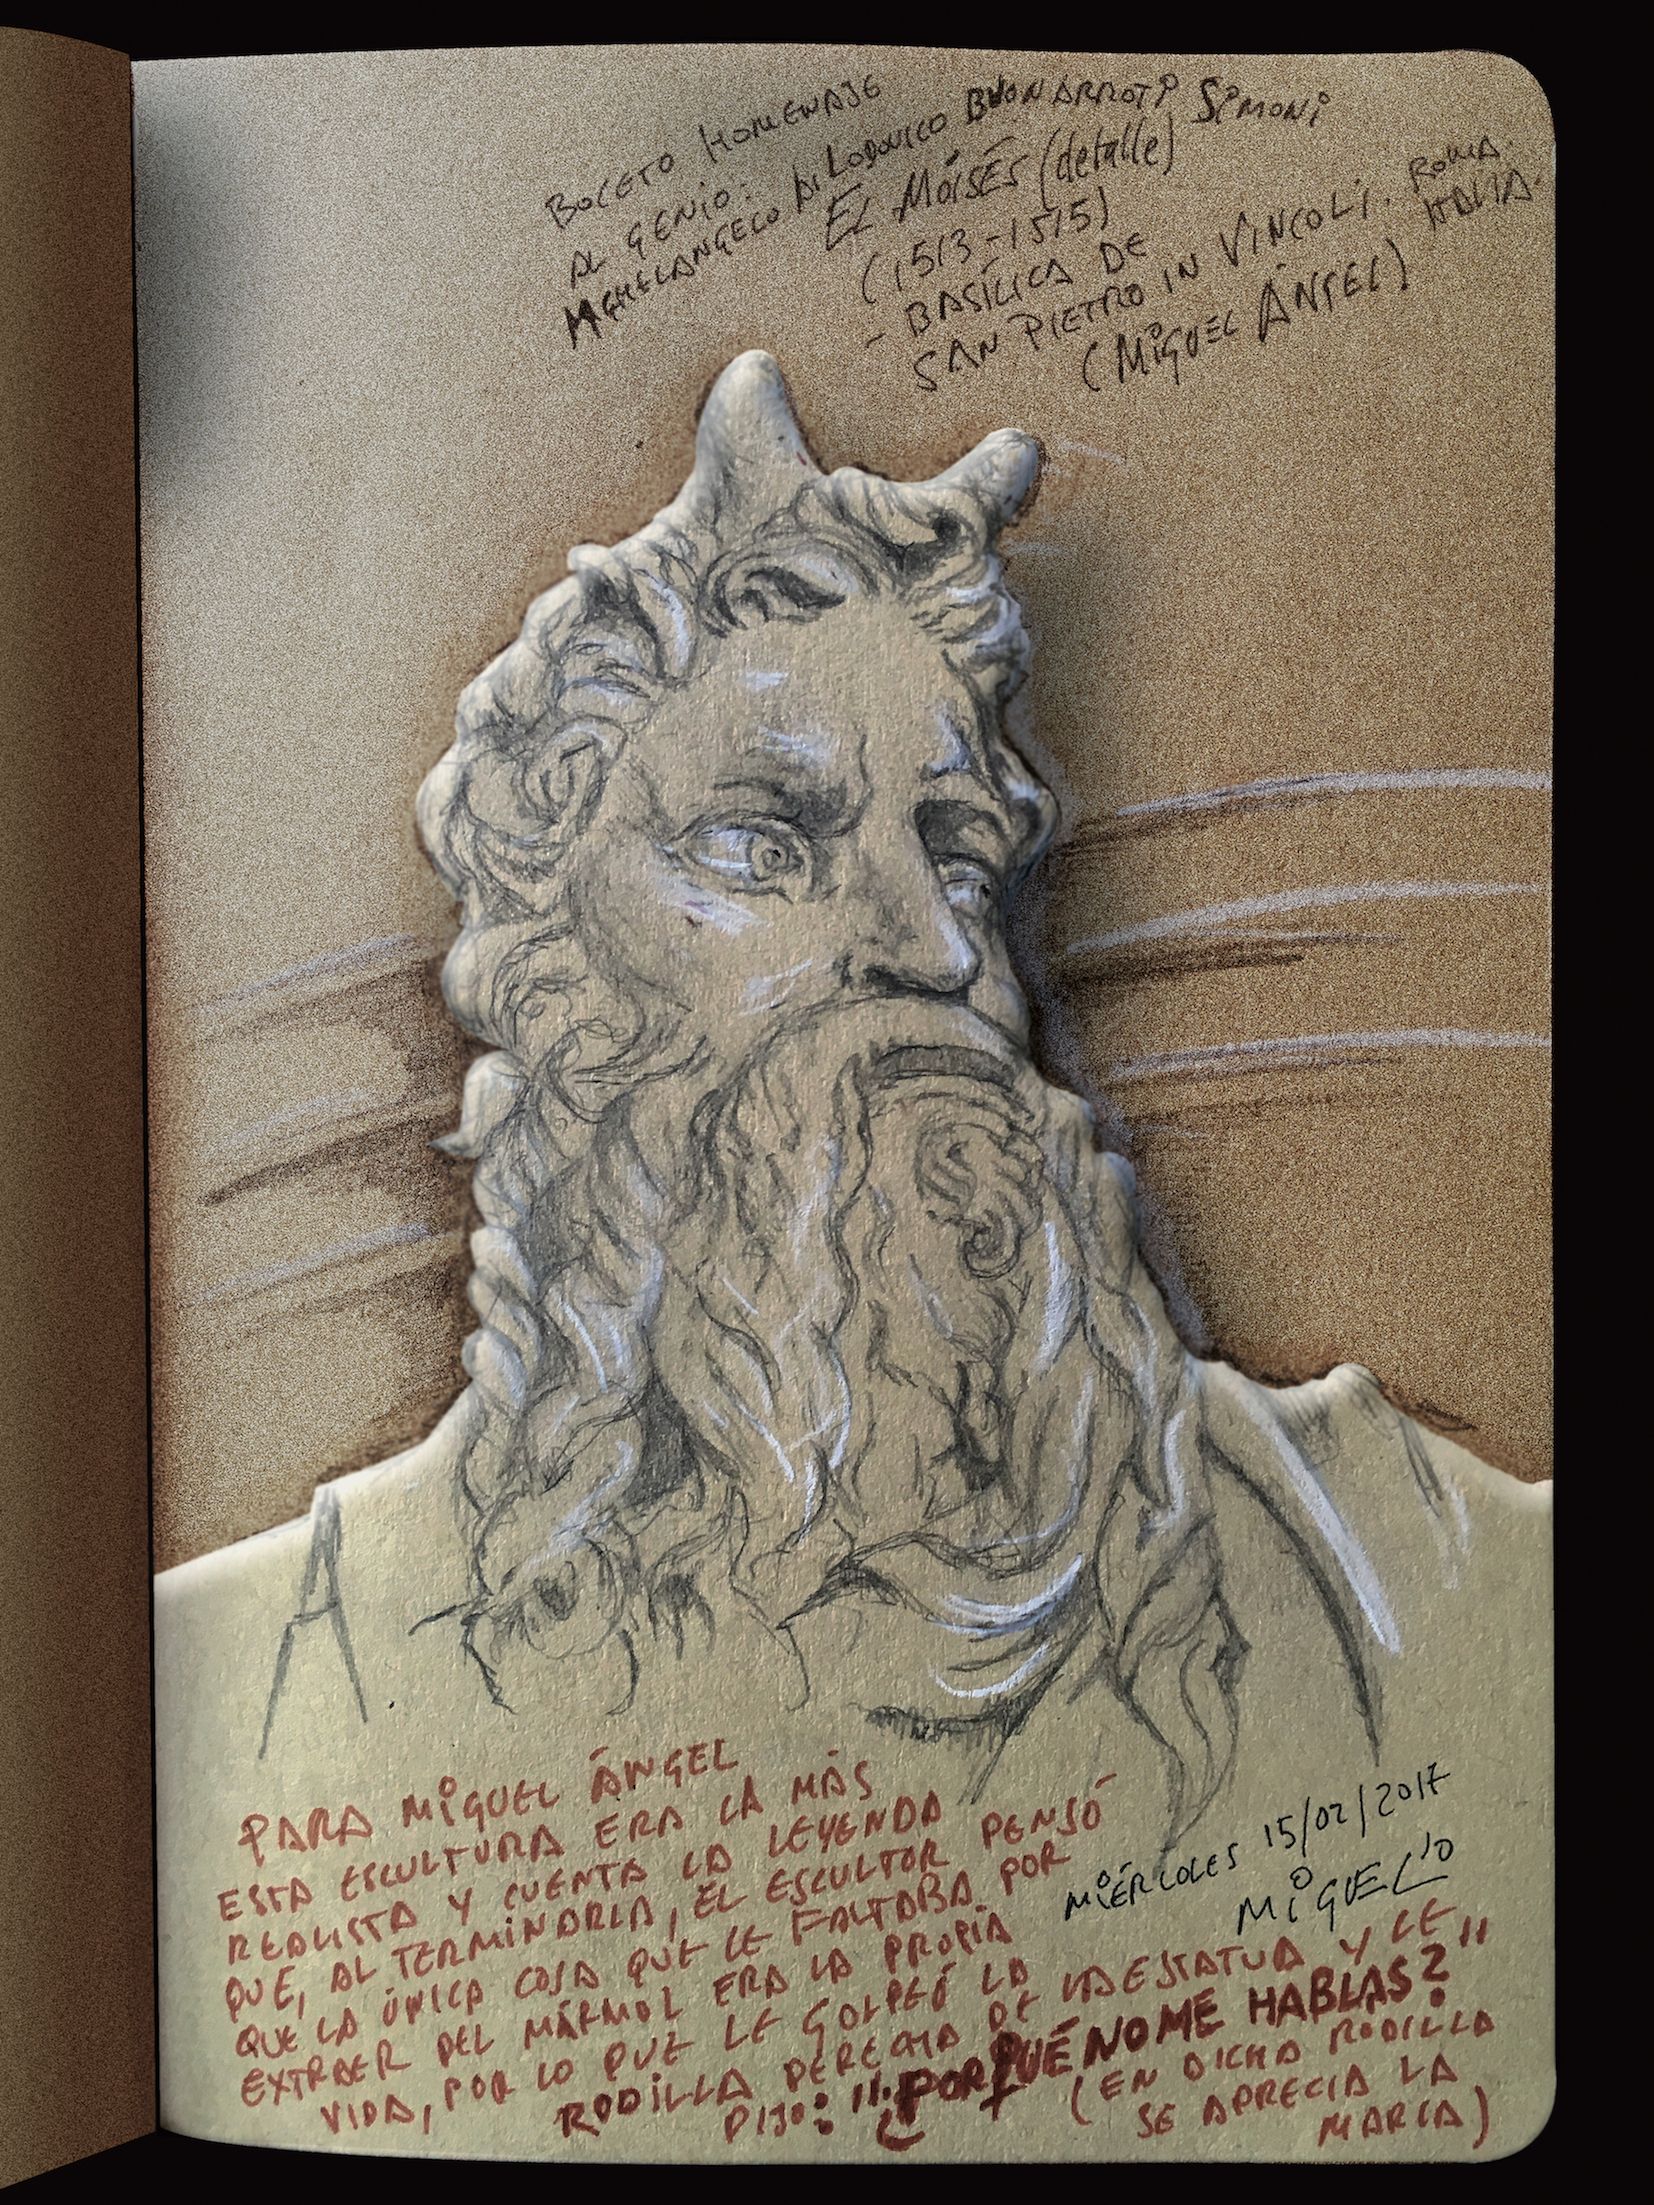 BOCETO HOMENAJE
AL GENIO:
MICHELANGELO DI LODOVICO BUONARROTI SIMONI
EL MOISÉS (detalle)
(1513-1515)
- BASÍLICA DE
SAN PIETRO IN VINCOLI. ROMA.
ITALIA.
(MIGUEL ÁNGEL)
PARA MIGUEL ÁNGEL
ESTA ESCULTURA ERA LA MÁS
REALISTA Y CUENTA LA LEYENDA
QUE, AL TERMINARLA, EL ESCULTOR PENSÓ
QUE LA ÚNICA COSA QUE LE FALTABA POR
EXTRAER DEL MÁRMOL ERA LA PROPIA
VIDA, POR LO QUE LE GOLPEÓ LA
RODILLA DERECHA DE LA ESTATUA Y LE
DIJO: "¿PORQUÉ NO ME HABLAS?"
(EN DICHA RODILLA
SE APRECIA LA
MARCA)
MIÉRCOLES 15/02/2017
MIGUEL'O